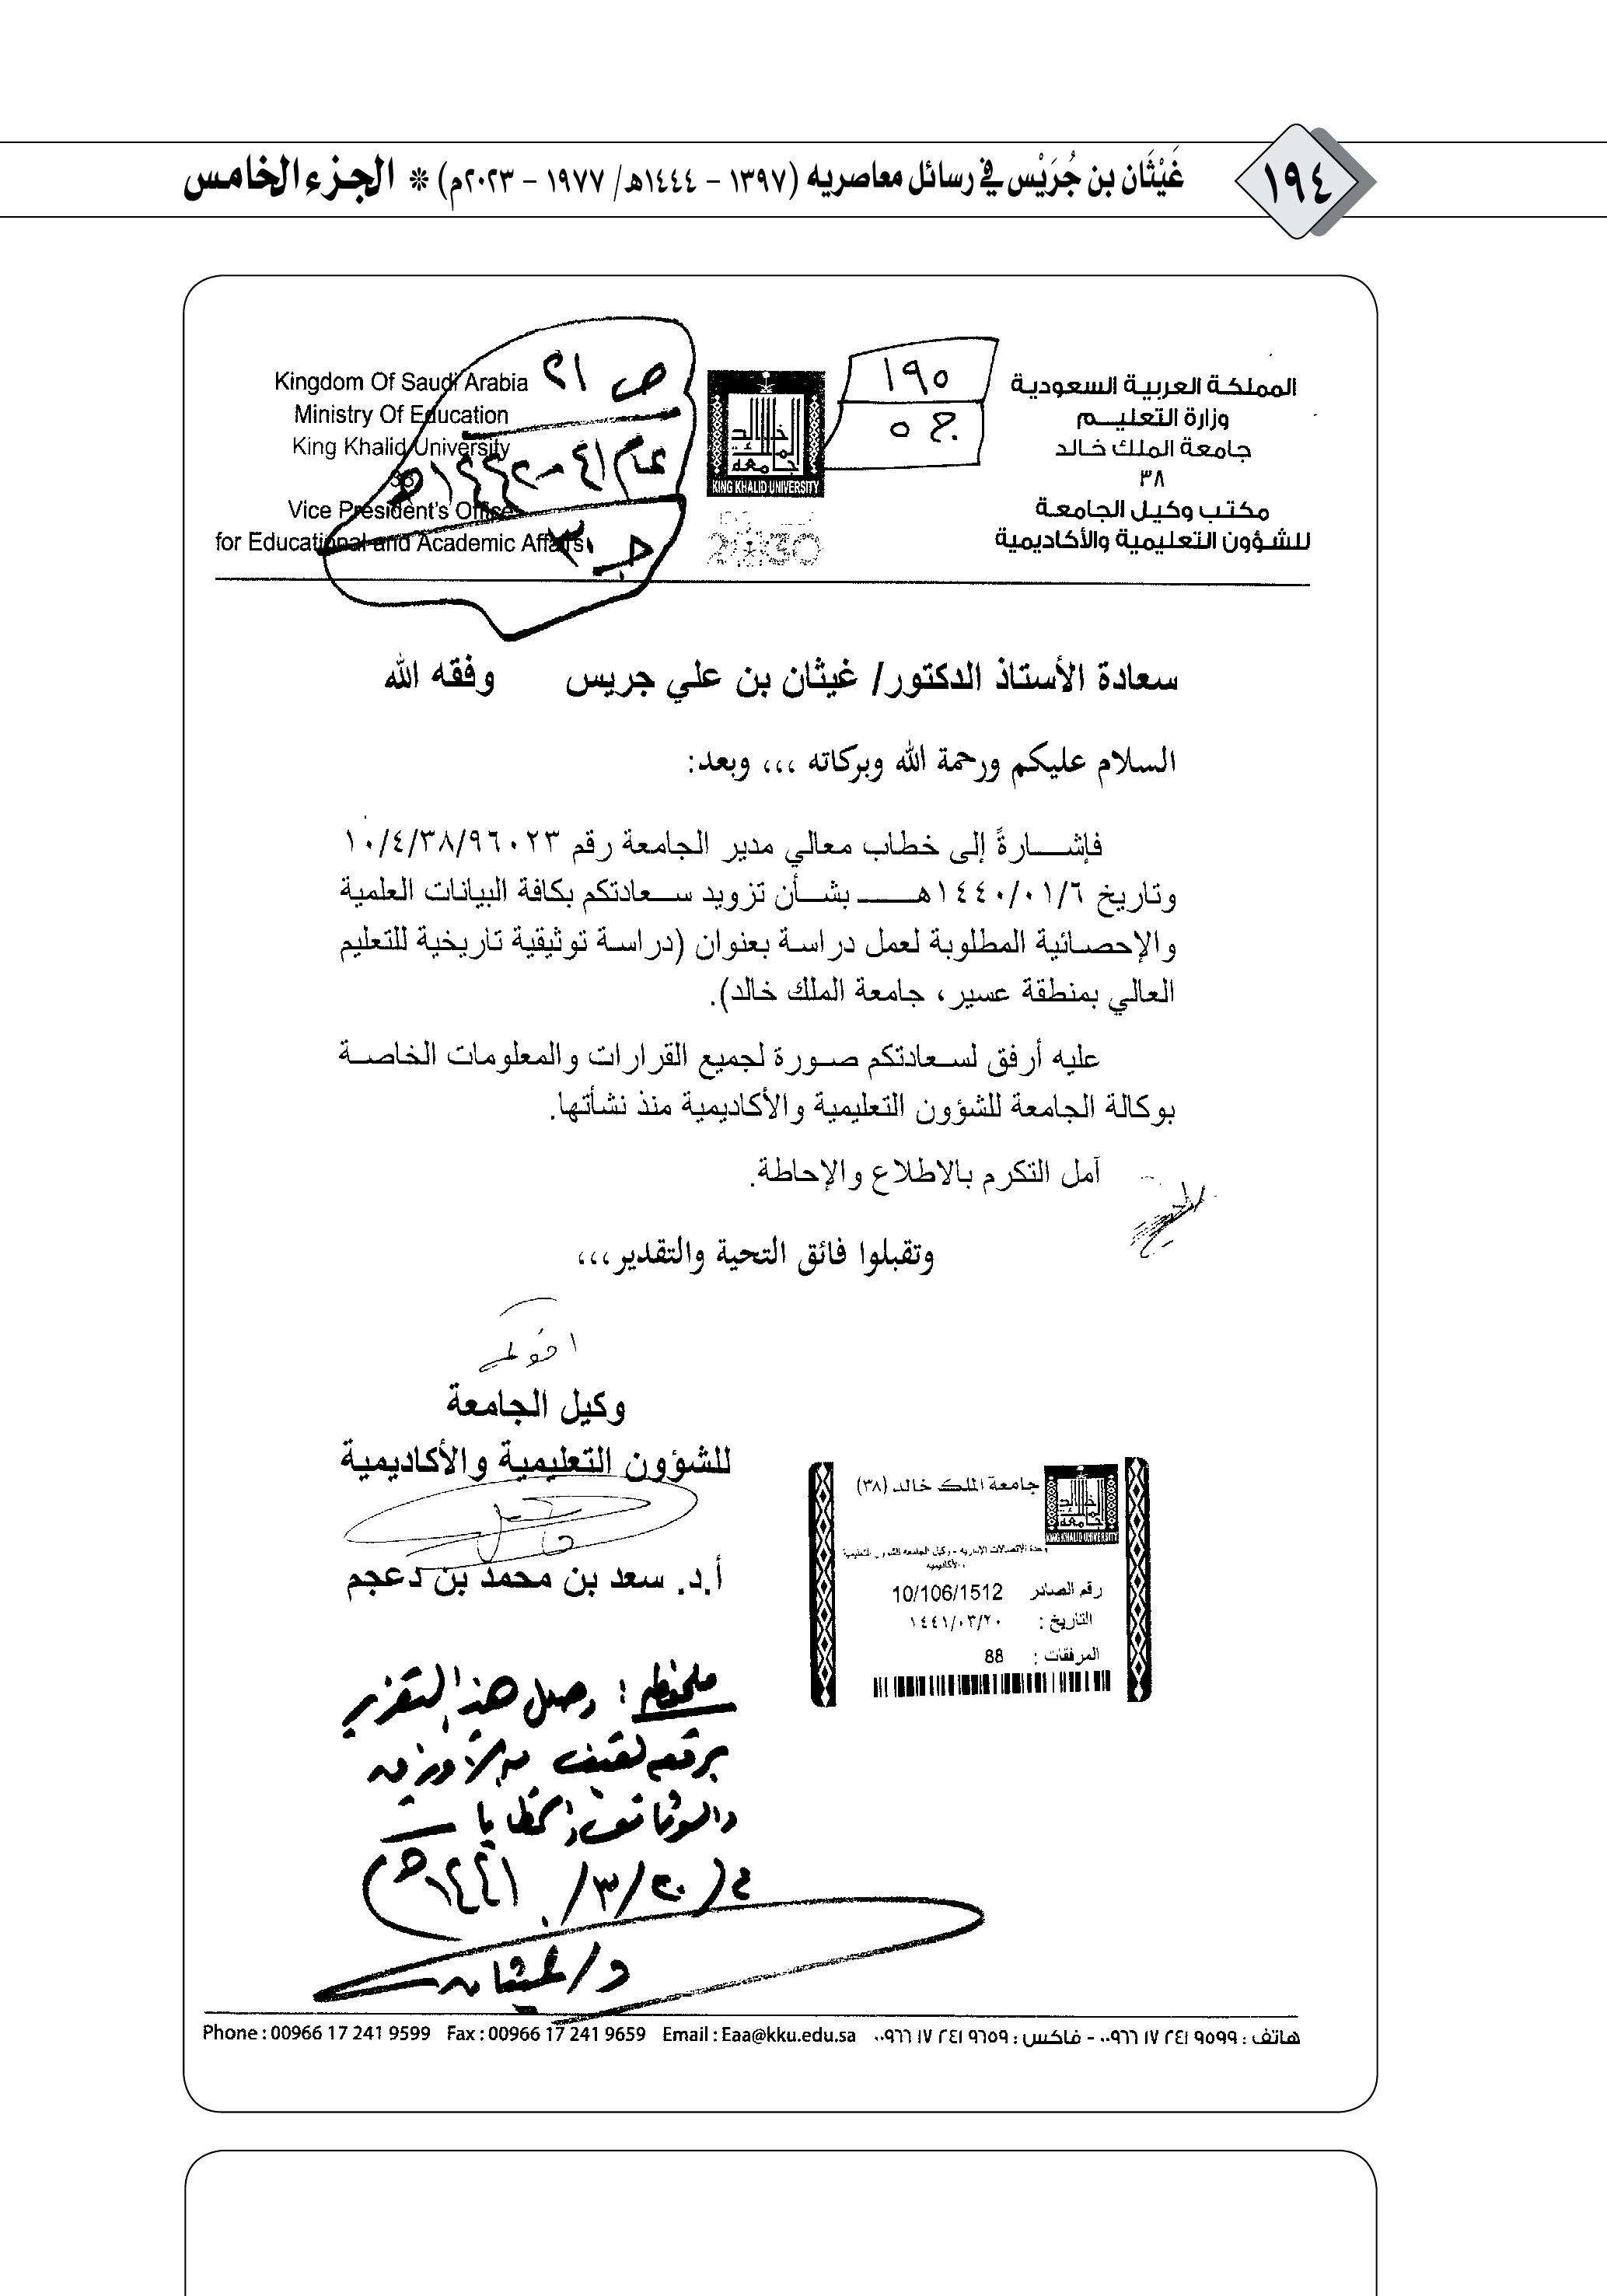 غَيْثَان بن جُرَيْس في رسائل معاصريه (١٣٩٧ - ١٤٤٤هـ/ ١٩٧٧ - ٢٠٢٣م) * الجزء الخامس
١٩٤
المملكة العربية السعودية
وزارة التعليم
جامعة الملك خالد
٣٨
مكتب وكيل الجامعة
للشؤون التعليمية والأكاديمية
١٩٥
ج ٥
KING KHALID UNIVERSITY
2030
Kingdom Of Saudi Arabia
Ministry Of Education
King Khalid University
38
Vice President's Office
for Educational and Academic Affairs
ص ٢١
عام ٤١-١٤٤٢هـ
جـ ٣
سعادة الأستاذ الدكتور/ غيثان بن علي جريس وفقه الله
السلام عليكم ورحمة الله وبركاته ،،، وبعد:
فإشـــارةً إلى خطاب معالي مدير الجامعة رقم ١٠/٤/٣٨/٩٦٠٢٣
وتاريخ ١٤٤٠/٠١/٦هـــ بشـأن تزويد سـعادتكم بكافة البيانات العلمية
والإحصائية المطلوبة لعمل دراسة بعنوان (دراسة توثيقية تاريخية للتعليم
العالي بمنطقة عسير، جامعة الملك خالد).
عليه أرفق لسعادتكم صورة لجميع القرارات والمعلومات الخاصة
بوكالة الجامعة للشؤون التعليمية والأكاديمية منذ نشأتها.
آمل التكرم بالاطلاع والإحاطة.
وتقبلوا فائق التحية والتقدير،،،
وكيل الجامعة
للشؤون التعليمية والأكاديمية
أ.د. سعد بن محمد بن دعجم
جامعة الملك خالد (٣٨)
KING KHALID UNIVERSITY
وحدة الإتصالات الإدارية - وكيل الجامعة للشؤون التعليمية
والأكاديمية
رقم الصادر 10/106/1512
التاريخ : ١٤٤١/٠٣/٢٠
المرفقات : 88
ملحوظة : وصل هذا التقرير
برفقه لفيف من الأوراق
والوثائق والخطابات
في (٢٠/٣/١٤٤١هـ)
د/غيثان
Phone : 00966 17 241 9599 Fax : 00966 17 241 9659 Email : Eaa@kku.edu.sa هاتف : ٠٠٩٦٦ ١٧ ٢٤١ ٩٥٩٩ - فاكس : ٠٠٩٦٦ ١٧ ٢٤١ ٩٦٥٩